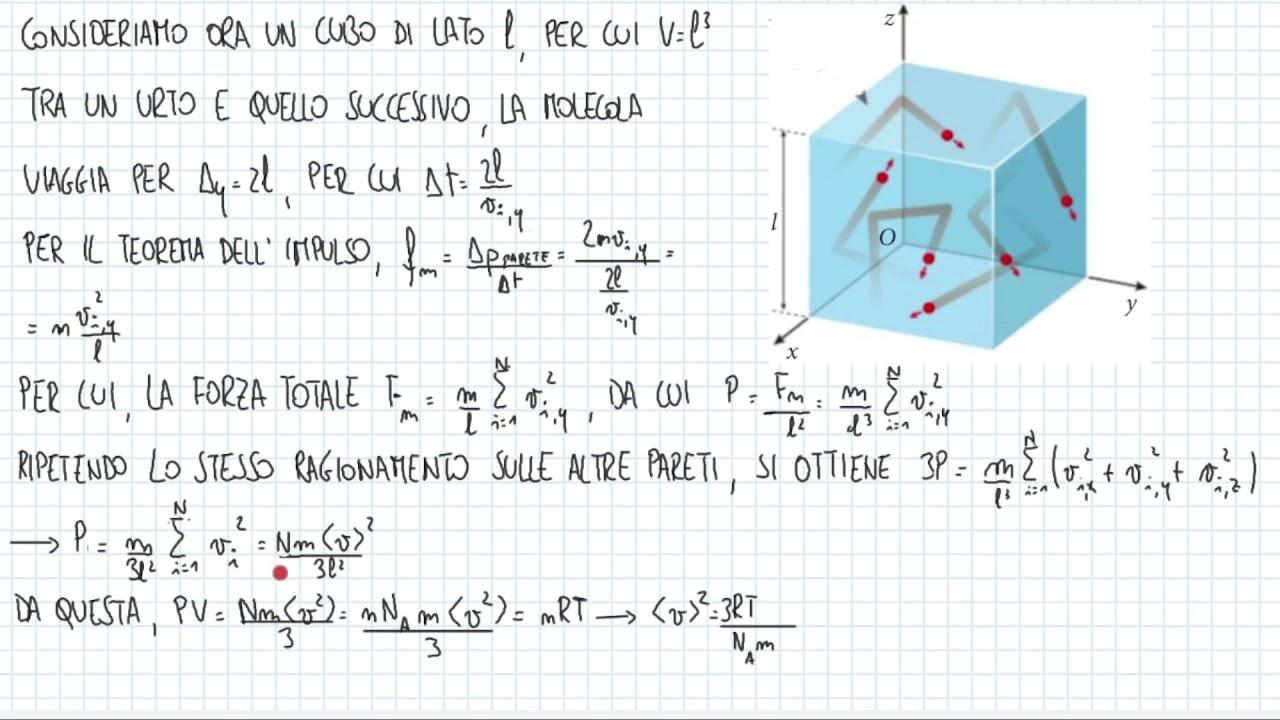 CONSIDERIAMO ORA UN CUBO DI LATO l, PER CUI V=l³
TRA UN URTO E QUELLO SUCCESSIVO, LA MOLECOLA
VIAGGIA PER Δy=2l, PER CUI Δt=2l/v_i,y
PER IL TEOREMA DELL'IMPULSO, f_m = Δp_PARETE/Δt = 2mv_i,y/(2l/v_i,y) =
= m v²_i,y/l
PER CUI, LA FORZA TOTALE F_m = m/l Σ_i=1^N v²_i,y, DA CUI P = F_m/l² = m/l³ Σ_i=1^N v²_i,y
RIPETENDO LO STESSO RAGIONAMENTO SULLE ALTRE PARETI, SI OTTIENE 3P = m/l³ Σ_i=1^N (v²_i,x + v²_i,y + v²_i,z)
→ P = m/3l² Σ_i=1^N v_i² = Nm⟨v⟩²/3l²
DA QUESTA, PV = Nm⟨v²⟩/3 = nN_A m⟨v²⟩/3 = nRT → ⟨v⟩² = 3RT/N_A m
z
l
O
y
x